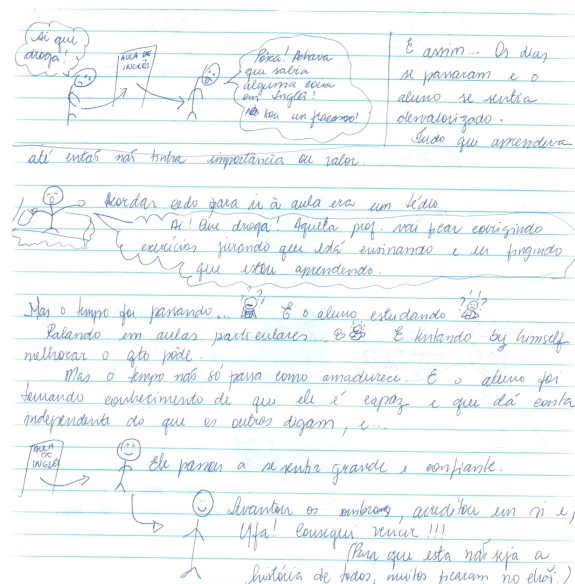 Ai que
droga!
AULA DE
INGLÊS
Pôxa! Achava
que sabia
alguma coisa
em Inglês!
sou um fracasso!
E assim... Os dias
se passaram e o
aluno se sentia
desvalorizado.
Tudo que aprendera
até então não tinha importância ou valor.
Acordar cedo para ir à aula era um tédio
Ai! Que droga! Aquela prof. vai ficar corrigindo
exercícios jurando que está ensinando e eu fingindo
que estou aprendendo.
Mas o tempo foi passando... ?!? E o aluno estudando ?!?
Ralando em aulas particulares... E tentando by himself
melhorar o qto pode.
Mas o tempo não só passa como amadurece. E o aluno foi
tomando conhecimento de que ele é capaz e que dá conta
independente do que os outros digam, e...
AULA
DE
INGLÊS
Ele passou a se sentir grande e confiante.
Levantou os ombros, acreditou em si e,
Ufa! Consegui vencer!!!
(Pena que esta não seja a
história de todos, muitos ficaram no chão.)